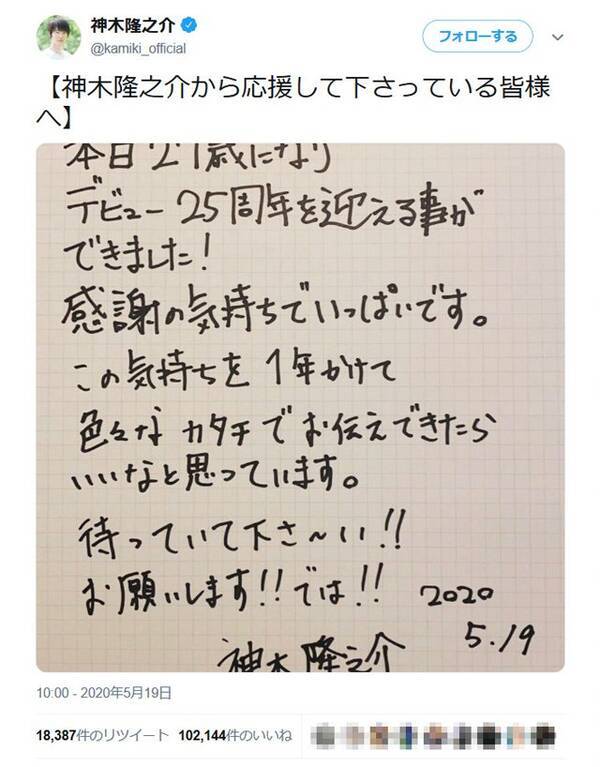 神木隆之介
@kamiki_official
フォローする
【神木隆之介から応援して下さっている皆様
へ】
本日27歳になり
デビュー25周年を迎える事が
できました!
感謝の気持ちでいっぱいです。
この気持ちを1年かけて
色々なカタチでお伝えできたら
いいなと思っています。
待っていて下さ〜い!!
お願いします!!では!!
2020
5.19
神木隆之介
10:00 - 2020年5月19日
18,387件のリツイート 102,144件のいいね